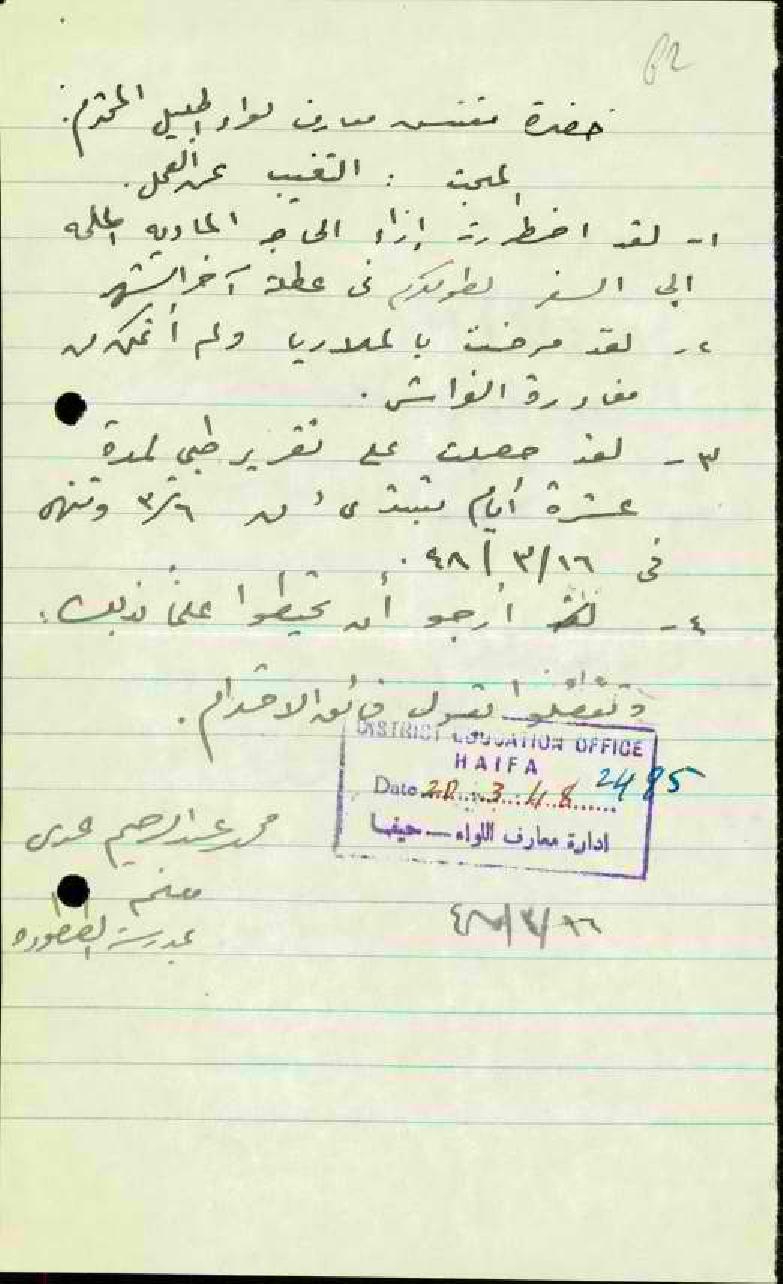 62
حضرة مفتش معارف لواء الجليل المحترم.
المبحث : التغيب عن العمل.
١- لقد اضطررت إزاء الحاجة المادية الملحة
الى السفر لطولكرم في عطلة آخر الشهر
٢- لقد مرضت بالملاريا ولم أتمكن من
مغادرة الفراش.
٣- لقد حصلت على تقرير طبي لمدة
عشرة أيام تبتدىء من ٣/٦ وتنتهي
في ١٦/٣/٤٨.
٤- أرجو أن تحيطوا علماً بذلك.
وتفضلوا بقبول فائق الاحترام.
DISTRICT EDUCATION OFFICE
HAIFA
2485
Date 20.3.48
ادارة معارف اللواء — حيفا
محمد عبد الرحيم عدى
معلم
١٦/٣/٤٨
بمدرسة الطنطورة